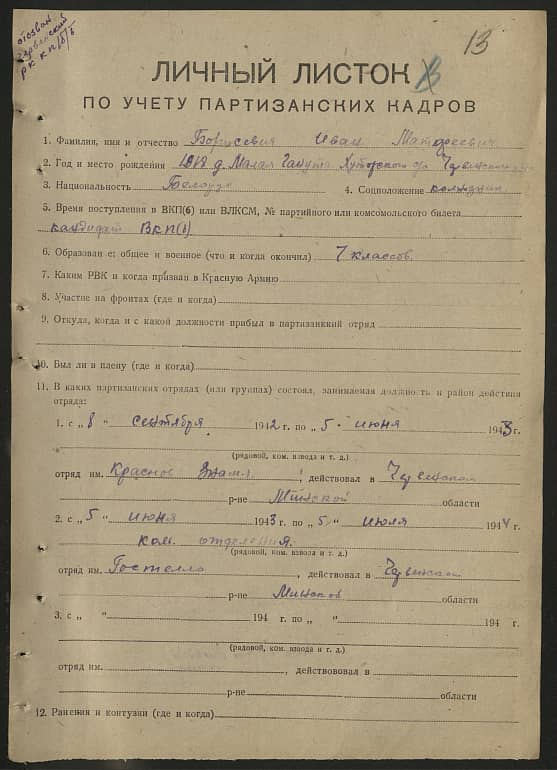 отозван в
Червенский
РК КП/б/Б
13
ЛИЧНЫЙ ЛИСТОК
ПО УЧЕТУ ПАРТИЗАНСКИХ КАДРОВ
1. Фамилия, имя и отчество Борисевич Иван Матвеевич
2. Год и место рождения 1918 д. Малая Хуторского
3. Национальность Белорус 4. Соцположение колхозник
5. Время поступления в ВКП(б) или ВЛКСМ, № партийного или комсомольского билета
кандидат ВКП(б)
6. Образован е: общее и военное (что и когда окончил) 7 классов.
7. Каким РВК и когда призван в Красную Армию
8. Участие на фронтах (где и когда)
9. Откуда, когда и с какой должности прибыл в партизанкий отряд
10. Был ли в плену (где и когда)
11. В каких партизанских отрядах (или группах) состоял, занимаемая должно ть и район действия
отряда:
1. с „ 8 “ сентября 1942 г. по „ 5 “ июня 1943 г.
(рядовой, ком. взвода и т. д.)
отряд им. Красное Знамя, действовал в Червенском
р-не Минской области
2. с „ 5 “ июня 1943 г. по „ 5 “ июля 1944 г.
ком. отделения.
(рядовой, ком. взвода и т. д.)
отряд им. Гостелло, действовал в Червенском
р-не Минской области
3. с „ “ 194 г. по „ “ 194 г.
(рядовой, ком. взвода и т. д.)
отряд им. , действововал в
р-не области
12. Ранения и контузии (где и когда)